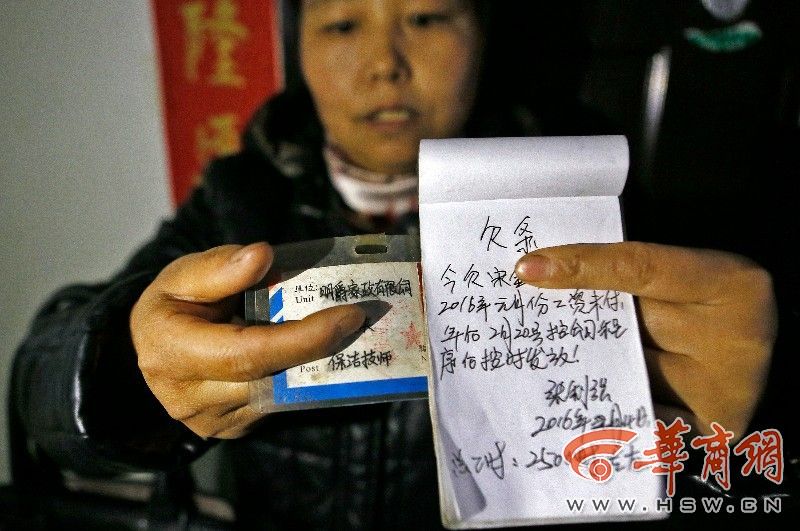 隆
单位: 明爵家政有限公司
Unit
保洁技师
Post
欠条
今欠宋
2016年元月份工资未付
年后2月20号按公司程
序给按时发放！
张剑强
2016年
总计：250
华商网
WWW.HSW.CN